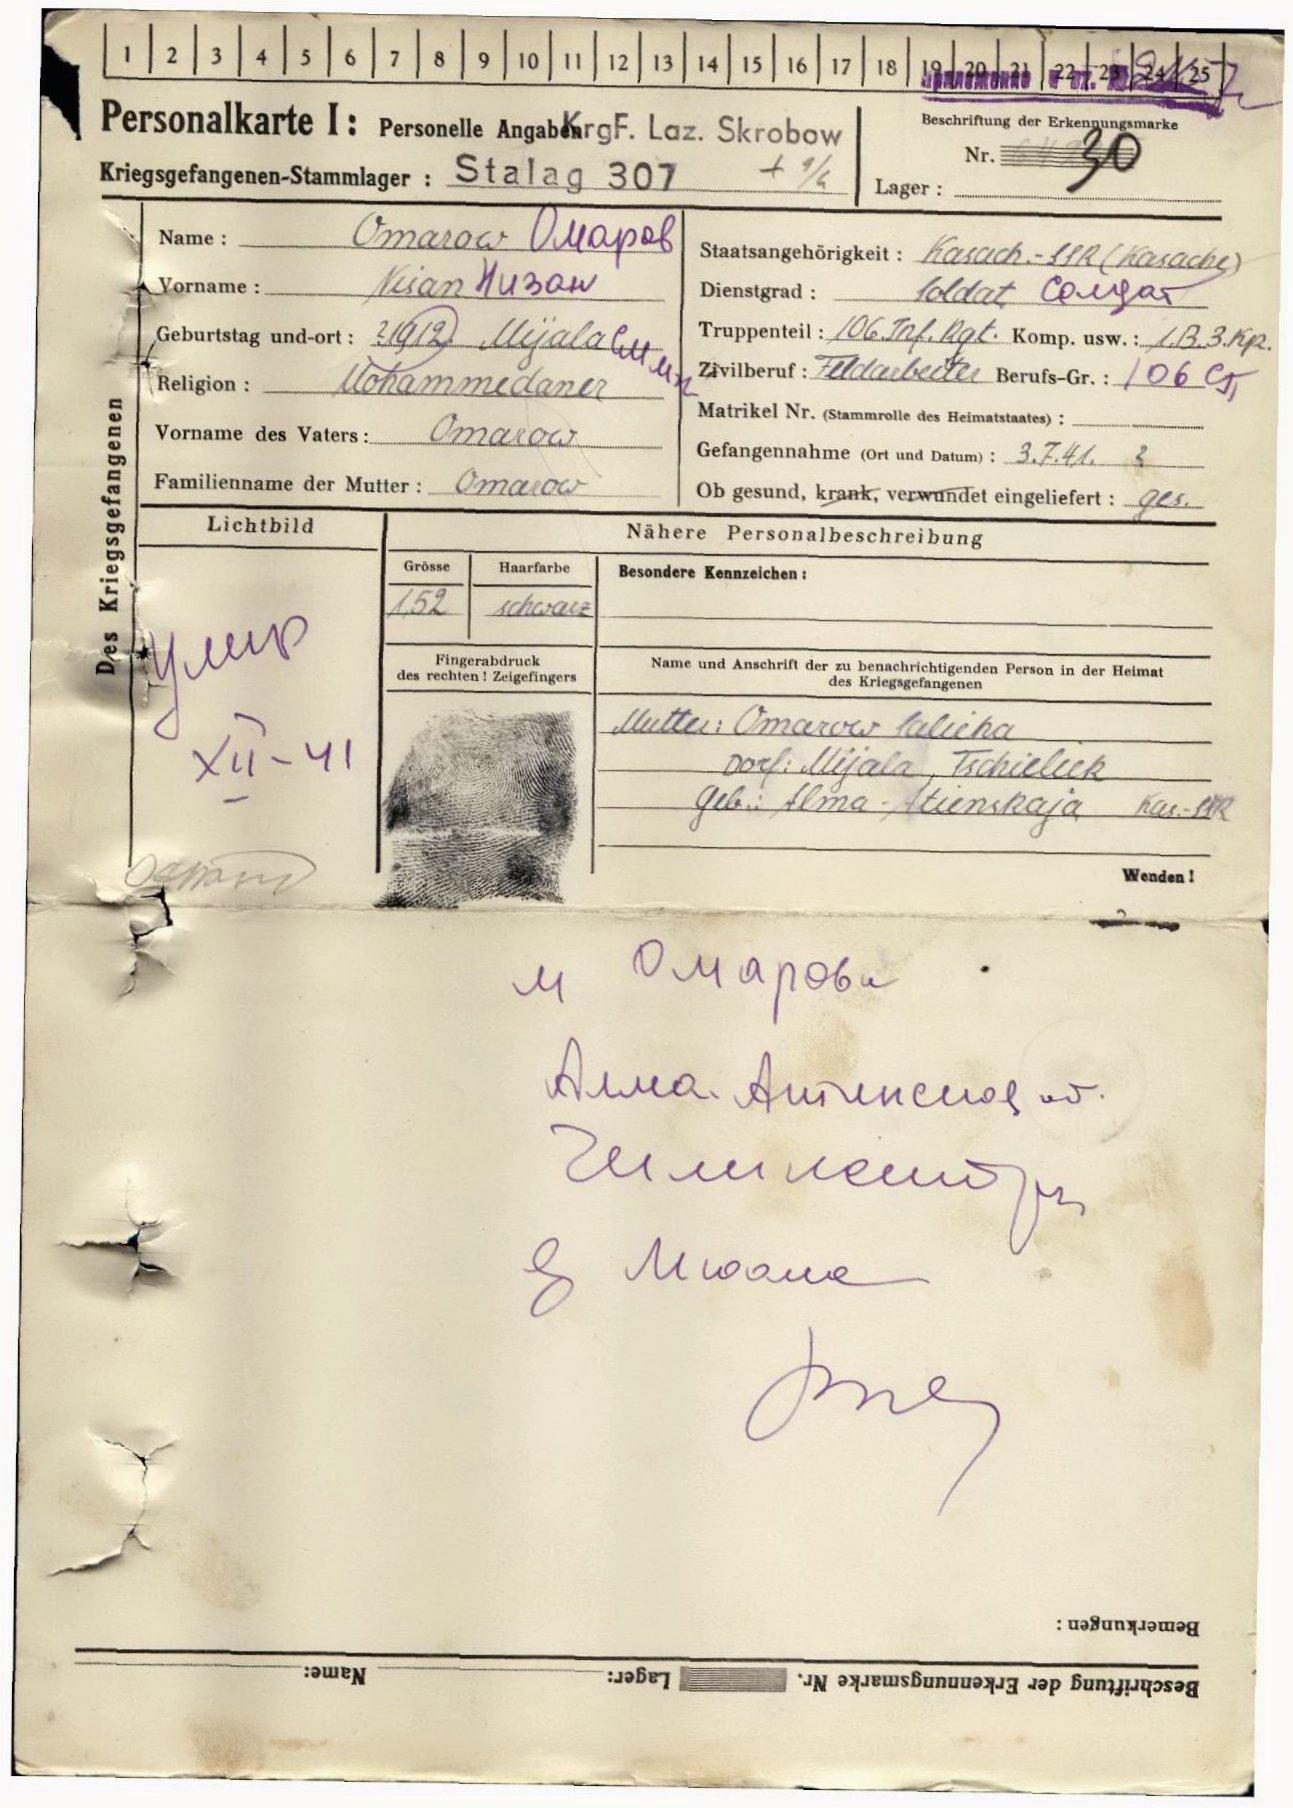 1 2 3 4 5 6 7 8 9 10 11 12 13 14 15 16 17 18 19 20 21 22 23 24 25
Personalkarte I: Personelle Angaben KrgF. Laz. Skrobow
Kriegsgefangenen-Stammlager: Stalag 307
Beschriftung der Erkennungsmarke
Nr. 30
Lager:
Des Kriegsgefangenen
Name: Omarow Омаров
Vorname: Nisan Низан
Geburtstag und-ort: 1912 Mijala
Religion: Mohammedaner
Vorname des Vaters: Omarow
Familienname der Mutter: Omarow
Staatsangehörigkeit: Kasach.-SSR (Kasache)
Dienstgrad: Soldat Солдат
Truppenteil: 106. Inf. Rgt. Komp. usw.: 1.B. 3. Kp.
Zivilberuf: Feldarbeiter Berufs-Gr.: 106 СП
Matrikel Nr. (Stammrolle des Heimatstaates):
Gefangennahme (Ort und Datum): 3.7.41. ?
Ob gesund, krank, verwundet eingeliefert: ges.
Lichtbild
умер
XII-41
Nähere Personalbeschreibung
Grösse
1,52
Haarfarbe
schwarz
Besondere Kennzeichen:
Fingerabdruck
des rechten! Zeigefingers
Name und Anschrift der zu benachrichtigenden Person in der Heimat
des Kriegsgefangenen
Mutter: Omarow Salicha
Dorf: Mijala, Tschieliek
Geb.: Alma-Atienskaja Kas.-SSR
Wenden!
м Омарова
Алма-Атинская об.
д Миала
Bemerkungen:
Beschriftung der Erkennungsmarke Nr. Lager: Name: